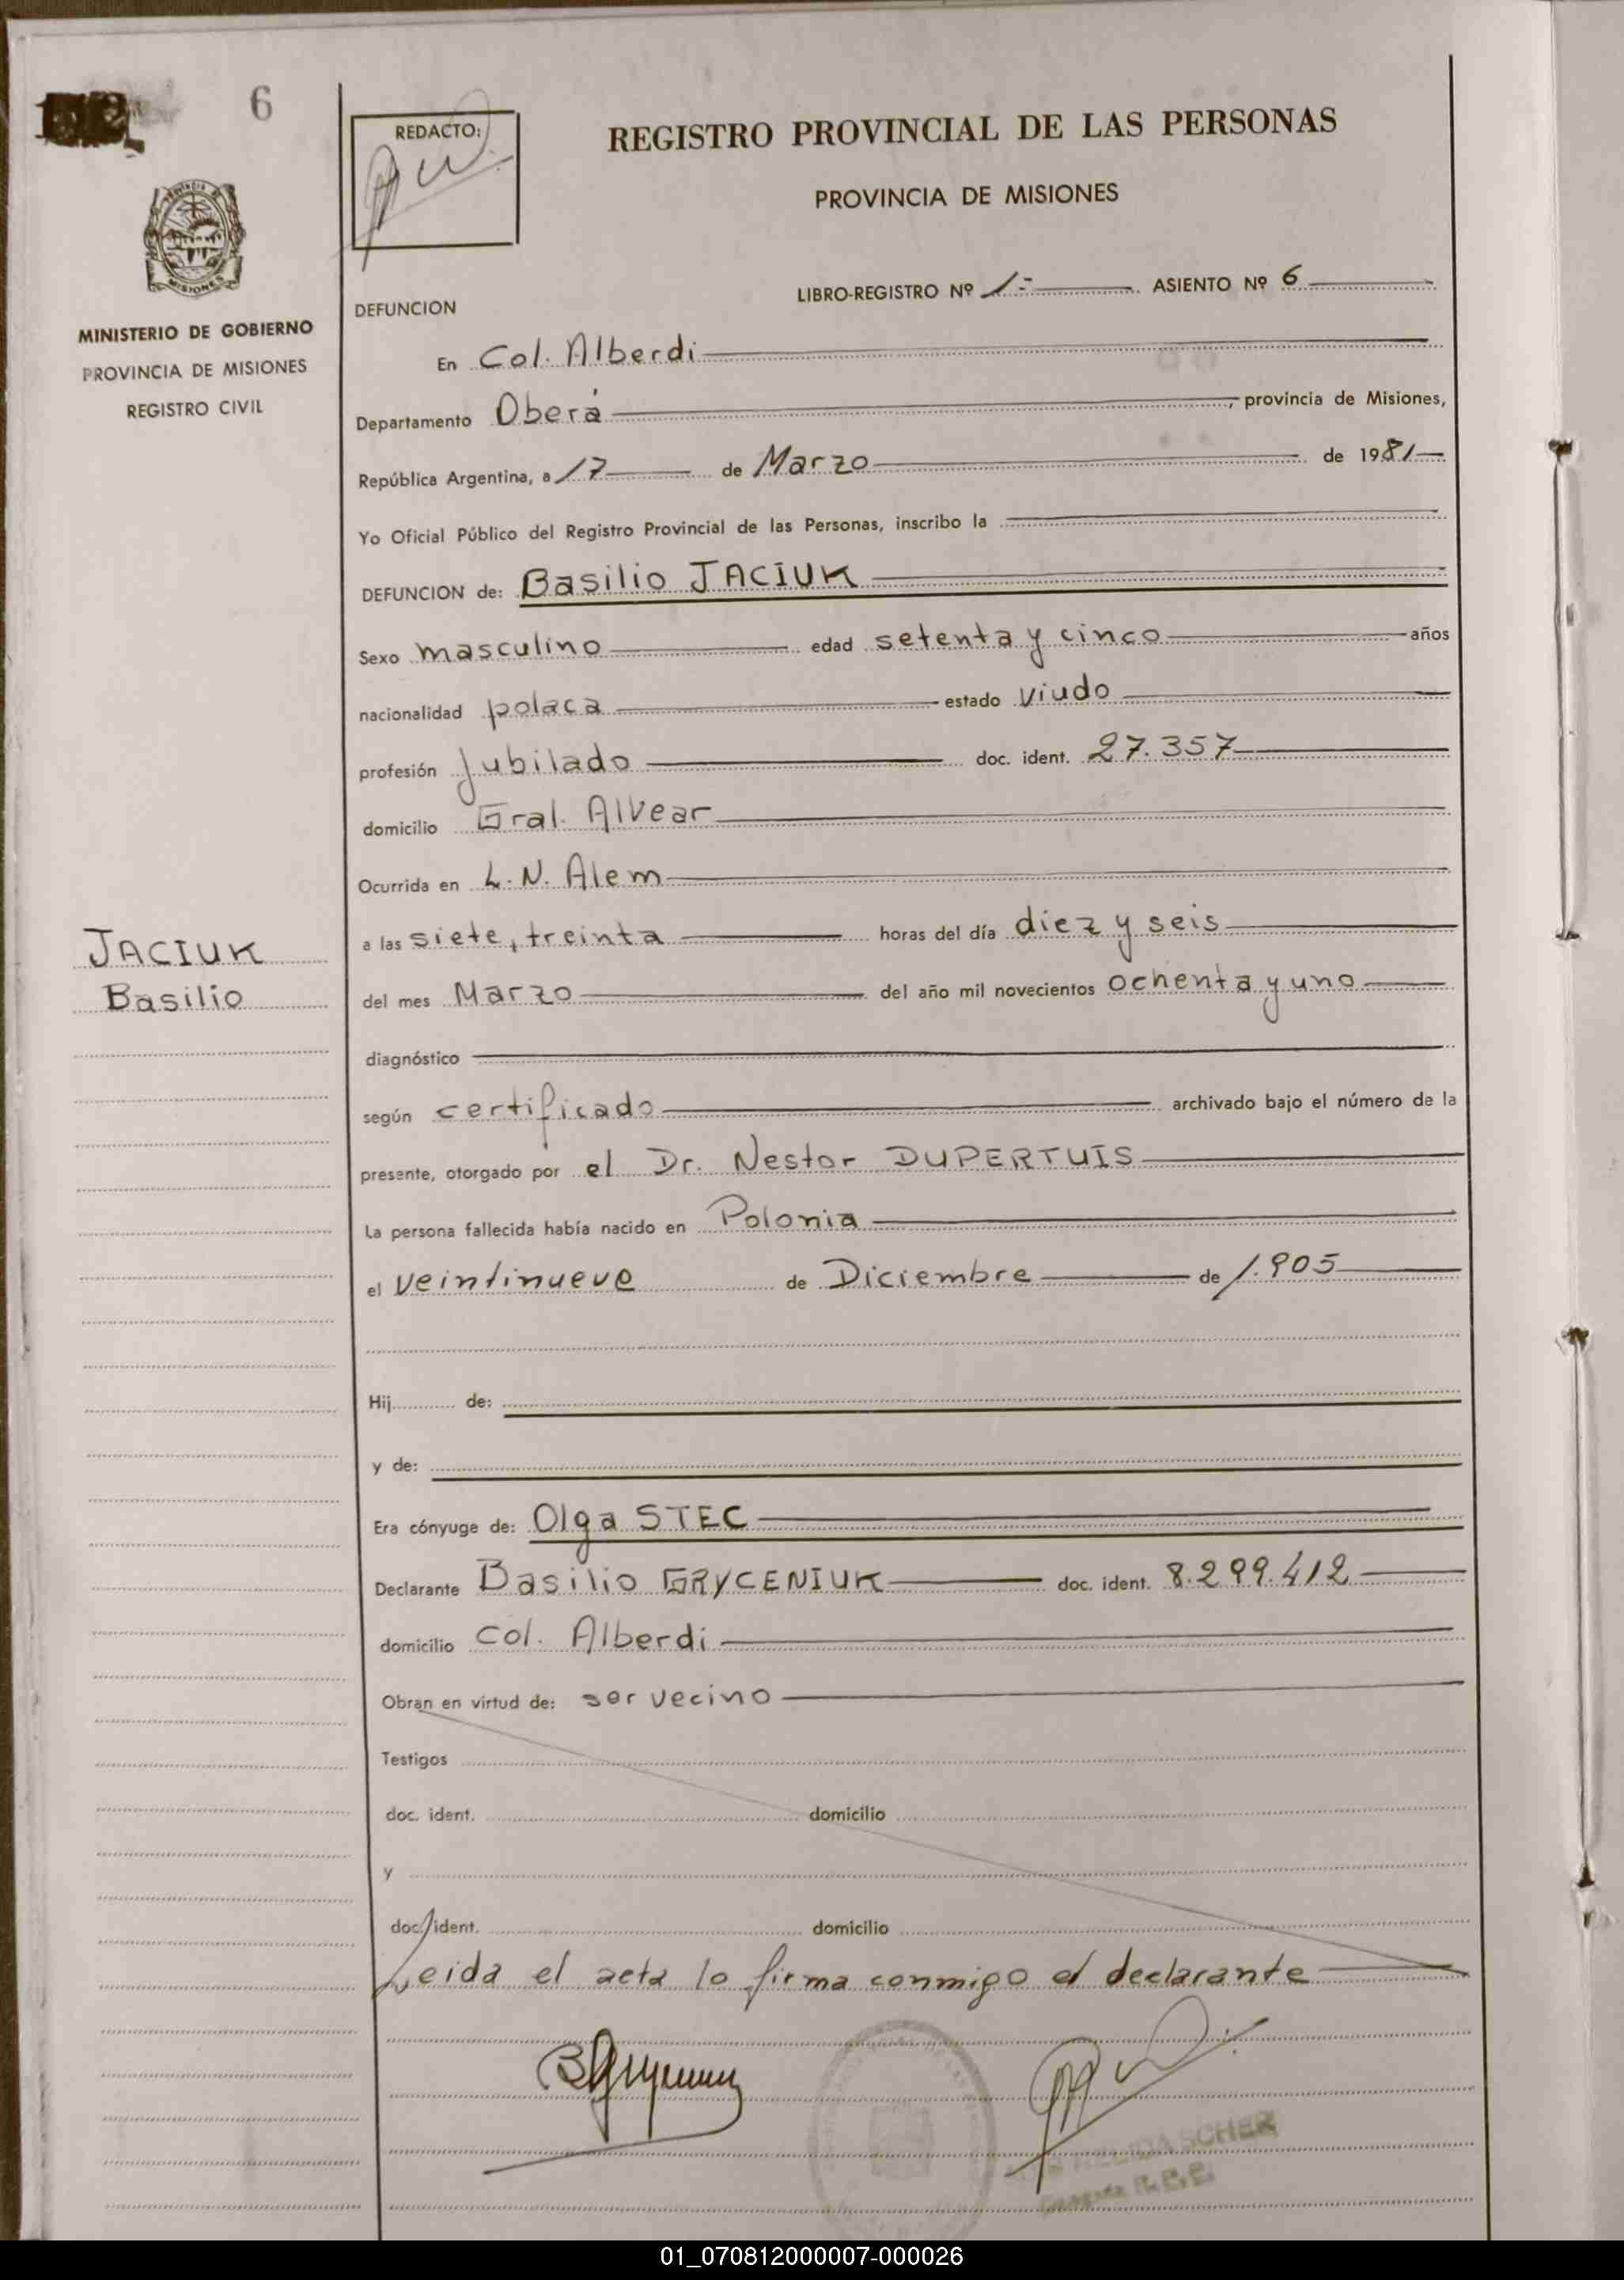 6
REDACTO:
REGISTRO PROVINCIAL DE LAS PERSONAS
PROVINCIA DE MISIONES
MISIONES
MINISTERIO DE GOBIERNO
PROVINCIA DE MISIONES
REGISTRO CIVIL
DEFUNCION
LIBRO-REGISTRO Nº 1- ASIENTO Nº 6
En Col. Alberdi
Departamento Oberá, provincia de Misiones,
República Argentina, a 17 de Marzo de 1981
Yo Oficial Público del Registro Provincial de las Personas, inscribo la
DEFUNCION de: Basilio JACIUK
Sexo masculino edad setenta y cinco años
nacionalidad polaca estado viudo
profesión jubilado doc. ident. 27.357
domicilio Gral. Alvear
Ocurrida en L. N. Alem
JACIUK
Basilio
a las siete, treinta horas del día diez y seis
del mes Marzo del año mil novecientos ochenta y uno
diagnóstico
según certificado archivado bajo el número de la
presente, otorgado por el Dr. Nestor DUPERTUIS
La persona fallecida había nacido en Polonia
el veintinueve de Diciembre de 1.905
Hij de:
y de:
Era cónyuge de: Olga STEC
Declarante Basilio GRYCENIUK doc. ident. 8.299.412
domicilio Col. Alberdi
Obran en virtud de: ser vecino
Testigos
doc. ident. domicilio
y
doc. ident. domicilio
Leida el acta lo firma conmigo el declarante
SCHER
01_070812000007-000026